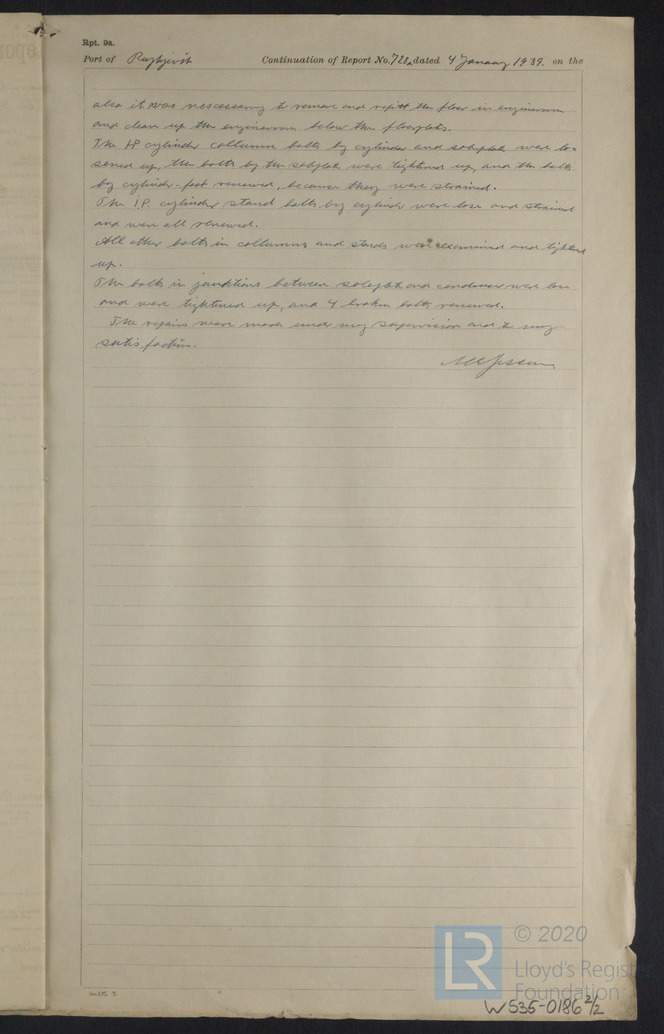 Rpt. 9a.
Port of Reykjavik Continuation of Report No. 728 dated 4 January 1939. on the
also it was nescessarry to remove and refitt the floor in engineroom
and clean up the engineroom below the floorplates.
The HP cylinder collumn bolts by cylinder and soleplate were loo-
sened up, the bolts by the soleplate were tightened up, and the bolts
by cylinder-foot renewed, because they were strained.
The I.P. cylinder stand bolts by cylinder were lose and strained
and were all renewed.
All other bolts in collumns and stands were examined and tightened
up.
The bolts in janktions between soleplate and condenser were lose
and were tightened up, and 4 broken bolts renewed.
The repairs were made under my supervision and to my
satisfaction.
© 2020
Lloyd's Register
Foundation
W535-0186 2/2